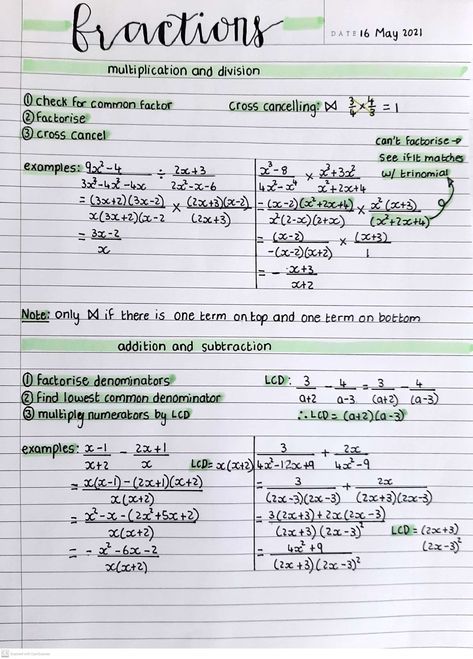 fractions
DATE 16 May 2021
multiplication and division
① check for common factor
② factorise
③ cross cancel
cross cancelling: ⋈ 3/4 × 4/3 = 1
can't factorise →
see if it matches
w/ trinomial
examples: (9x² - 4)/(3x³ - 4x² - 4x) ÷ (2x+3)/(2x² - x - 6)
= (3x+2)(3x-2)/x(3x+2)(x-2 × (2x+3)(x-2)/(2x+3)
= (3x-2)/x
(x³ - 8)/(4x² - x⁴) × (x³ + 3x²)/(x² + 2x + 4)
= (x-2)(x²+2x+4)/x²(2-x)(2+x) × x²(x+3)/(x²+2x+4)
= (x-2)/-(x-2)(x+2) × (x+3)/1
= - (x+3)/(x+2)
Note: only ⋈ if there is one term on top and one term on bottom
addition and subtraction
① factorise denominators
② find lowest common denominator
③ multiply numerators by LCD
LCD: 3/(a+2) - 4/(a-3) = 3/(a+2) - 4/(a-3)
∴ LCD = (a+2)(a-3)
examples: (x-1)/(x+2) - (2x+1)/x
LCD = x(x+2)
= x(x-1) - (2x+1)(x+2)/x(x+2)
= x² - x - (2x² + 5x + 2)/x(x+2)
= - x² - 6x - 2/x(x+2)
3/(4x² - 12x + 9) + 2x/(4x² - 9)
= 3/(2x-3)(2x-3) + 2x/(2x+3)(2x-3)
= 3(2x+3) + 2x(2x-3)/(2x+3)(2x-3)²
LCD = (2x+3)
(2x-3)²
= 4x² + 9/(2x+3)(2x-3)²
CS Scanned with CamScanner